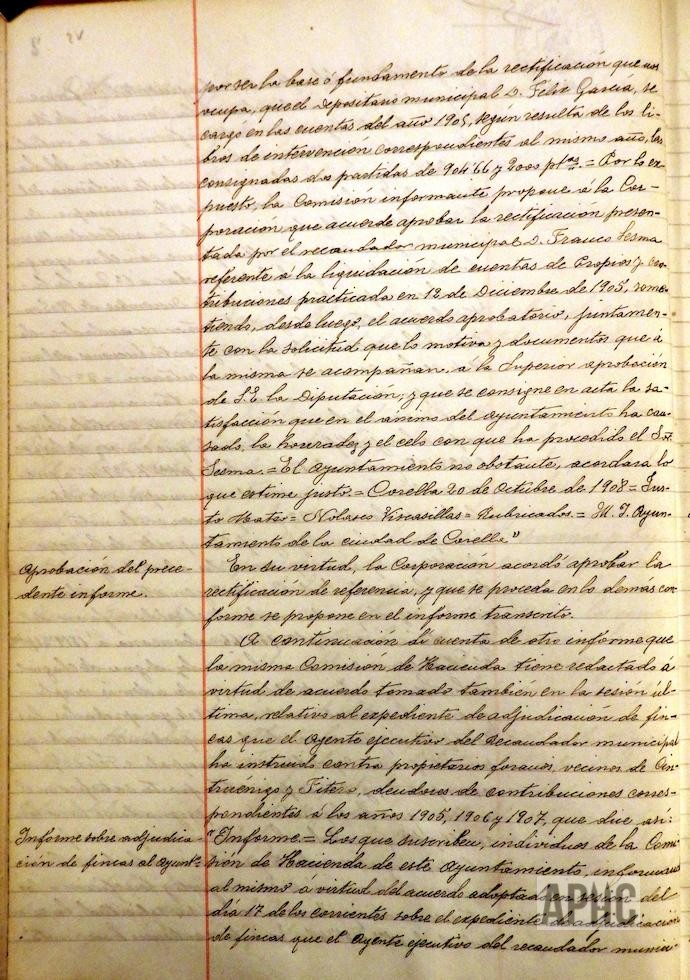 por ser la base ó fundamento de la rectificación que nos
ocupa, que el Depositario municipal D. Félix García, se
cargó en las cuentas del año 1905, según resulta de los li-
bros de intervención correspondientes al mismo año, las
consignadas dos partidas de 904'66 y 2000 ptas. = Por lo ex-
puesto, la Comisión informante propone á la Cor-
poración que acuerde aprobar la rectificación presen-
tada por el recaudador municipal D. Franco Sesma
referente á la liquidación de cuentas de Propios y con-
tribuciones practicada en 12 de Diciembre de 1905, some-
tiendo, desde luego, el acuerdo aprobatorio, juntamen-
te con la solicitud que lo motiva y documentos que á
la misma se acompañan, a la Superior aprobación
de S.E. la Diputación; y que se consigne en acta la sa-
tisfacción que en el ánimo del Ayuntamiento ha cau-
sado, la honradez y el celo con que ha procedido el Sr.
Sesma. = El Ayuntamiento no obstante, acordara lo
que estime justo. = Corella 20 de Octubre de 1908 = Jus-
to Mateo = Nolasco Viscasillas = Rubricados. = M. I. Ayun-
tamiento de la ciudad de Corella"
Aprobación del prece-
dente informe.
En su virtud, la Corporación acordó aprobar la
rectificación de referencia, y que se proceda en lo demás con-
forme se propone en el informe transcrito.
A continuación dí cuenta de otro informe que
la misma Comisión de Hacienda tiene redactado á
virtud de acuerdo tomado también en la sesión úl-
tima, relativo al expediente de adjudicación de fin-
cas que el Agente ejecutivo del Recaudador municipal
ha instruido contra propietarios foranos, vecinos de Cin-
truénigo y Fitero, deudores de contribuciones corres-
pondientes á los años 1905, 1906 y 1907, que dice así:
Informe sobre adjudica
ción de fincas al Ayunto
"Informe = Los que suscriben, individuos de la Comi-
sión de Hacienda de este Ayuntamiento, informamos
al mismo á virtud del acuerdo adoptado en sesión del
día 17 de los corrientes sobre el expediente de adjudicación
de fincas que el Agente ejecutivo del recaudador munici-
APHC